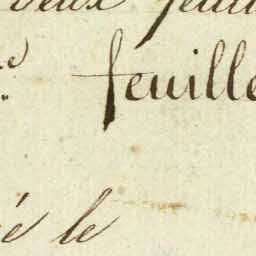 deux feuill
feuille
é le